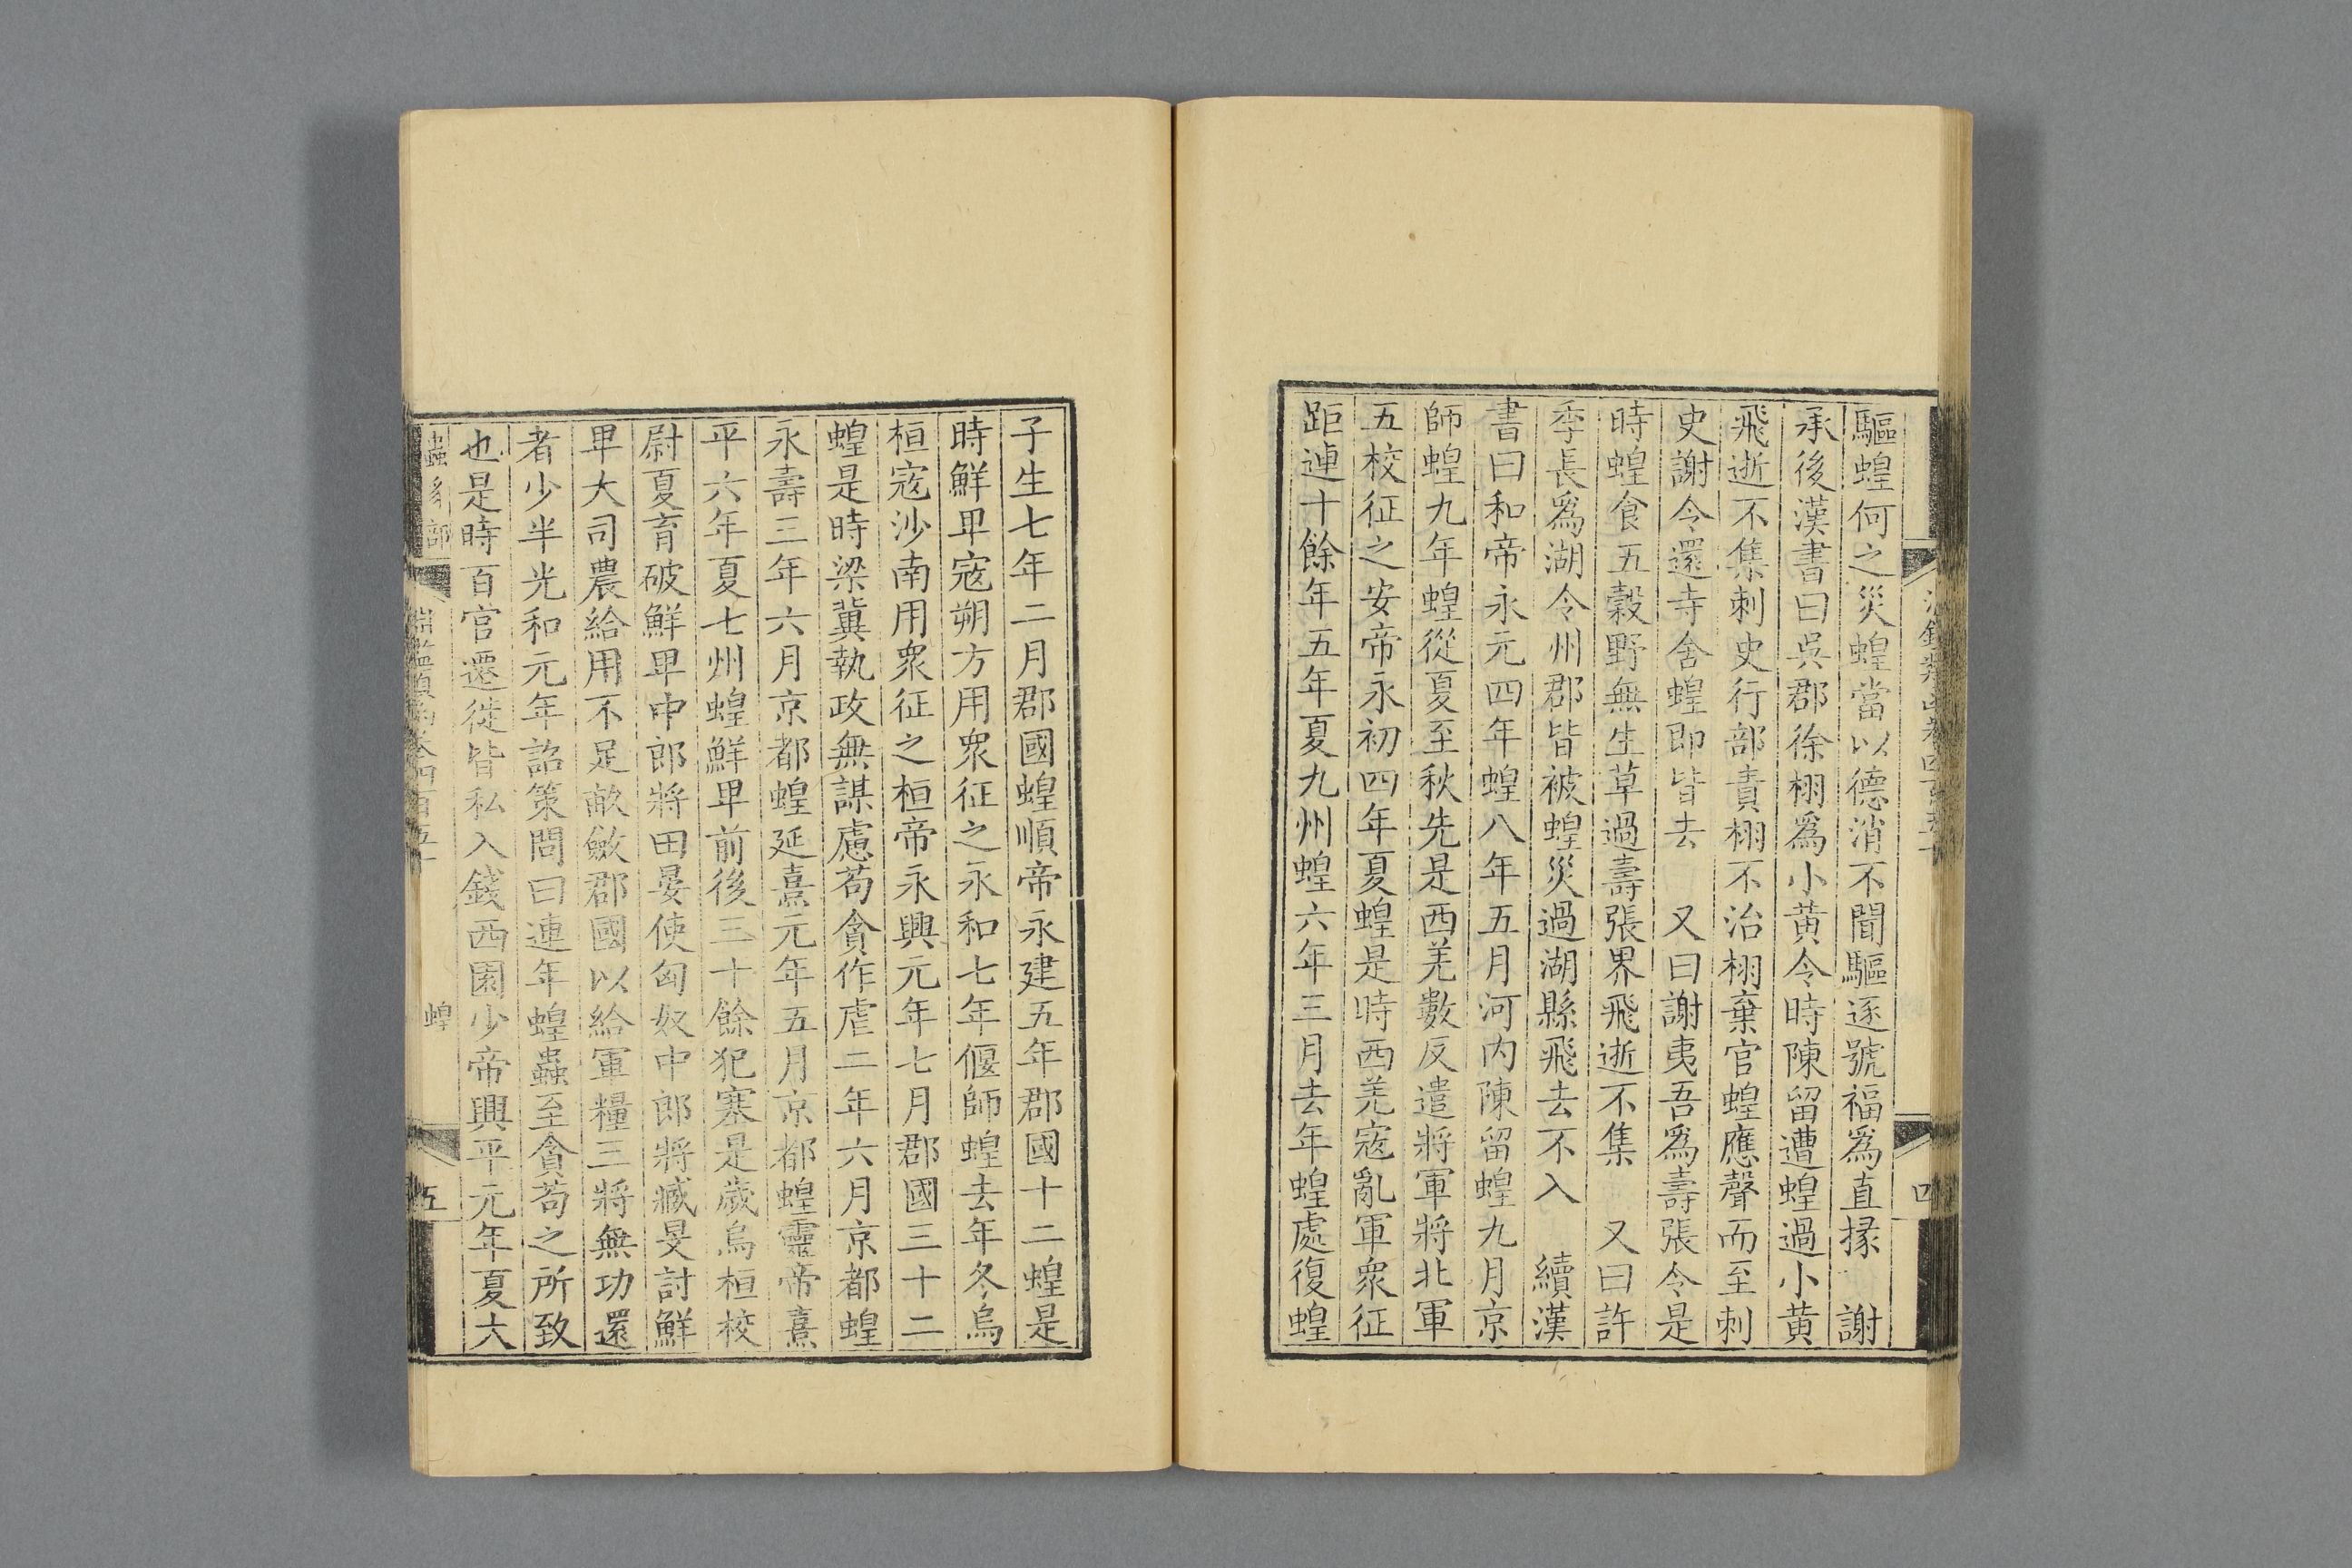 驅蝗何之災蝗當以德消不聞驅逐號福爲直掾 謝
承後漢書曰吳郡徐栩爲小黄令時陳留遭蝗過小黄
飛逝不集刺史行部責栩不治栩棄官蝗應聲而至刺
史謝令還寺舍蝗即皆去 又曰謝夷吾爲壽張令是
時蝗食五穀野無生草過壽張界飛逝不集 又曰許
季長爲湖令州郡皆被蝗災過湖縣飛去不入 續漢
書曰和帝永元四年蝗八年五月河内陳留蝗九月京
師蝗九年蝗從夏至秋先是西羌數反遣將軍將北軍
五校征之安帝永初四年夏蝗是時西羌寇亂軍衆征
距連十餘年五年夏九州蝗六年三月去年蝗處復蝗
四
子生七年二月郡國蝗順帝永建五年郡國十二蝗是
時鮮卑寇朔方用衆征之永和七年偃師蝗去年冬烏
桓寇沙南用衆征之桓帝永興元年七月郡國三十二
蝗是時梁冀執政無謀慮苟貪作虐二年六月京都蝗
永壽三年六月京都蝗延熹元年五月京都蝗靈帝熹
平六年夏七州蝗鮮卑前後三十餘犯塞是歲烏桓校
尉夏育破鮮卑中郎將田晏使匈奴中郎將臧旻討鮮
卑大司農給用不足畝斂郡國以給軍糧三將無功還
者少半光和元年詔策問曰連年蝗蟲至貪苟之所致
也是時百官遷徙皆私入錢西園少帝興平元年夏大
蟲豸部 淵鑑類函卷四百五十 蝗 五